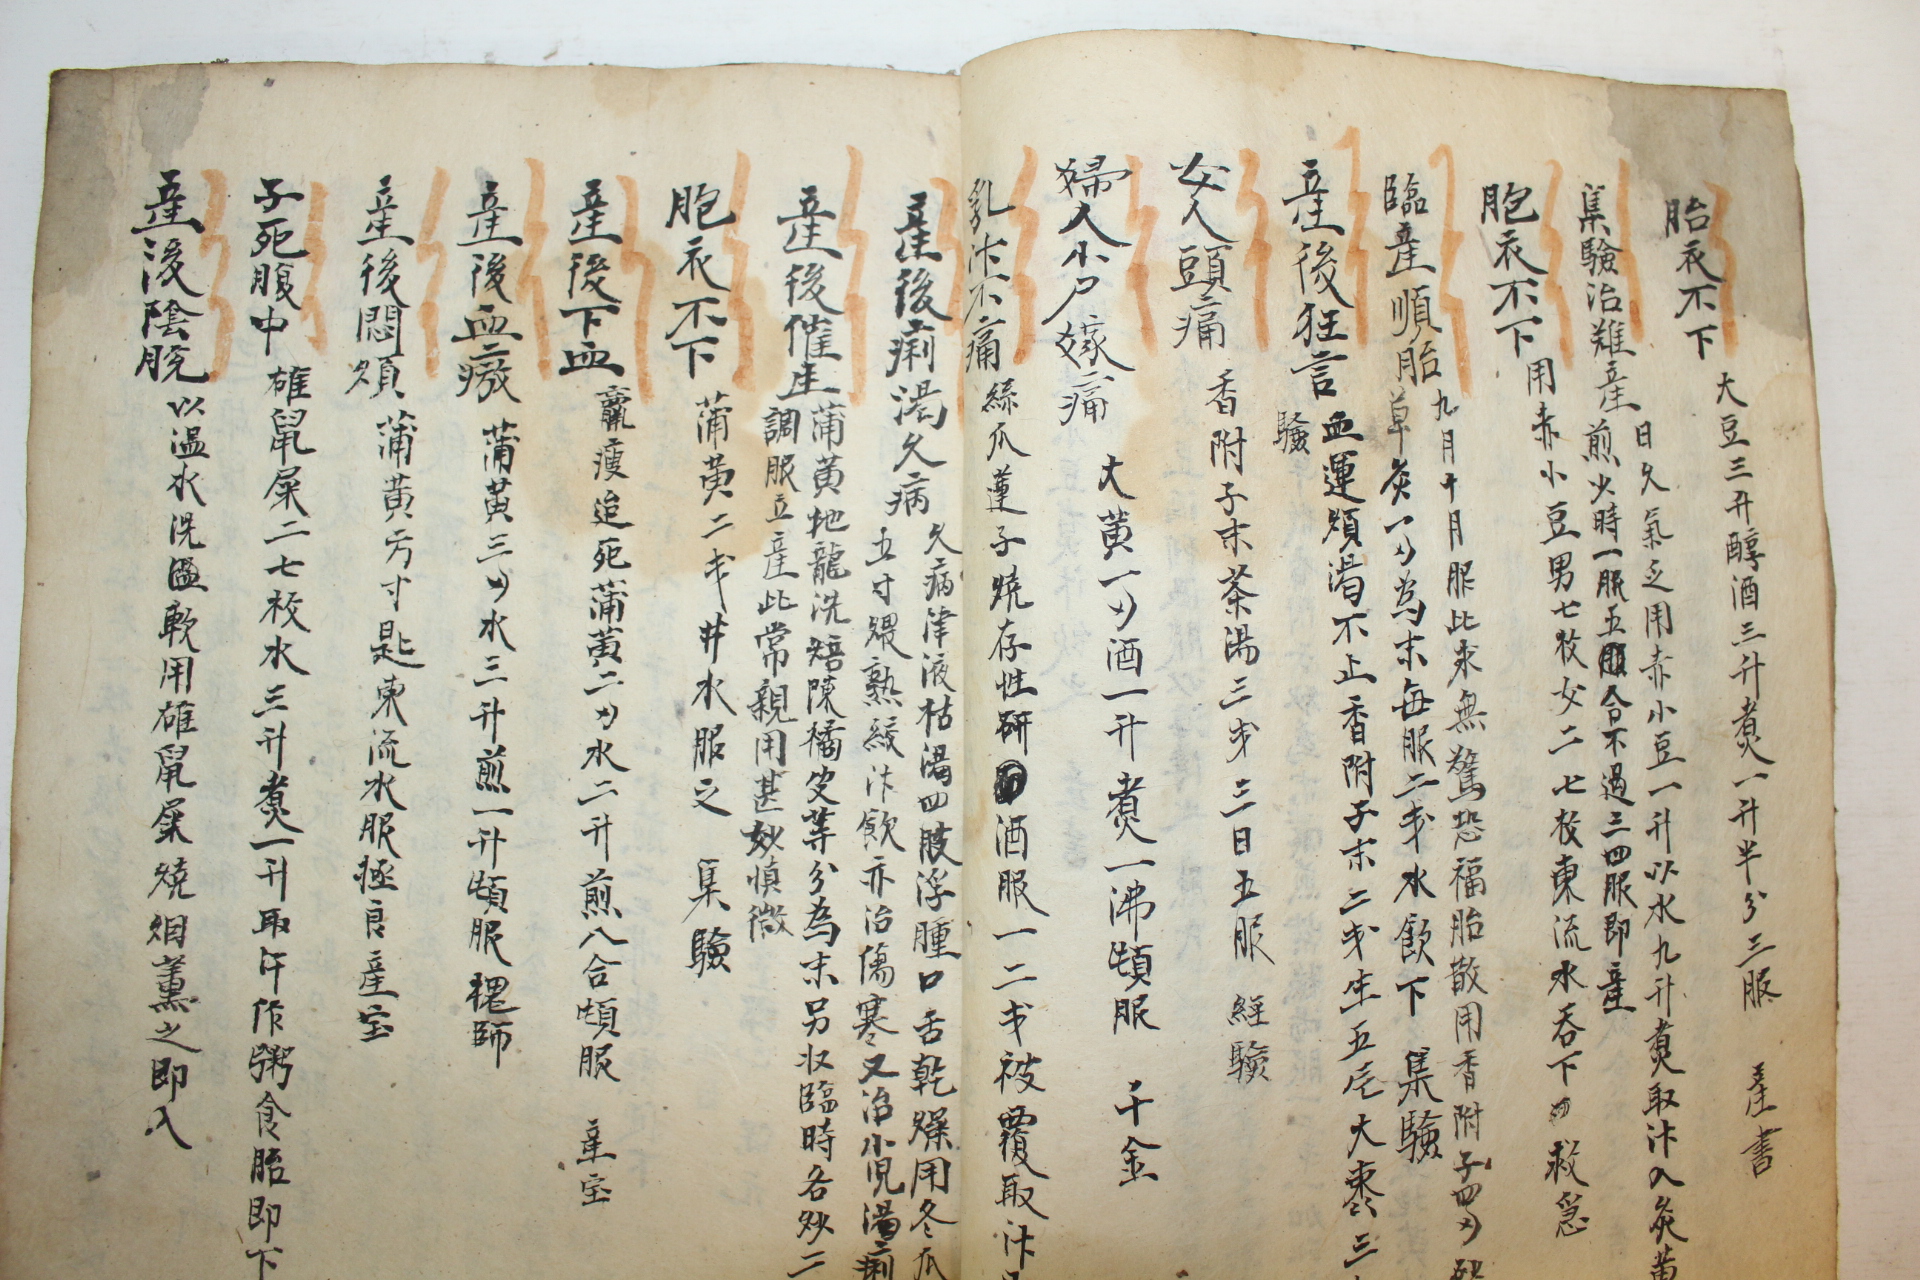 胎衣不下 大豆三升醇酒三升煮一升半分三服 産書
集驗治難産 日久氣乏用赤小豆一升以水九升煮取汁入炙黄
煎少時一服五合不過三四服即産
胞衣不下 用赤小豆男七枚女二七枚東流水吞下 救急
臨産順胎 九月十月服此永無驚恐福胎散用香附子四
炙一為末每服二戔水飮下 集驗
産後狂言 血運煩渴不止香附子末二戔生五 大棗三
驗
女人頭痛 香附子末茶湯三戔三日五服 經驗
婦人小戶嫁痛 大黄一刃酒一升煮一沸頓服 千金
乳汁不痛 絲瓜蓮子燒存性硏酒服一二戔被覆取汁
産後痢渴久病 久病津液枯渴四肢浮腫口舌乾燥用冬瓜
五寸煨熟絞汁飮亦治傷寒又治小児渴痢
産後催生 蒲黄地龍洗焙陳橘皮等分為末另収臨時各炒二
調服立産此常親用甚妙愼微
胞衣不下 蒲黄二戔井水服之 集驗
産後下血 羸瘦追死蒲黄二刃水二升煎八合頓服 産宝
産後血癥 蒲黄三刃水三升煎一升頓服 梶師
産後悶煩 蒲黄方寸匙東流水服極良 産宝
子死腹中 雄鼠屎二七枚水三升煮一升取汁作粥食胎即下
産後陰脫 以温水洗軟用雄鼠屎燒烟薰之即入